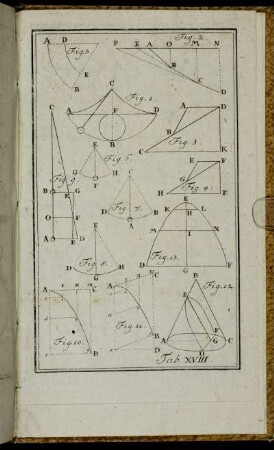 A D
Fig. 9.
B
E
F E A O M N
Fig. 2.
B
C
D
C
A F D
Fig. 1.
B
A D
B
Fig. 3.
C K
E
Fig. 5.
G H
F
F F
G
Fig. 4.
H E
C
B G
Fig. 9.
O F
A E D
C
Fig. 7.
A B
E
D G H
Fig. 8.
E
K L
H
M I N
D G F
Fig. 13.
A C
Fig. 10.
B
A C
Fig. 11.
D B
B
Fig. 12.
E
F
A G C
D
Tab. XVIII